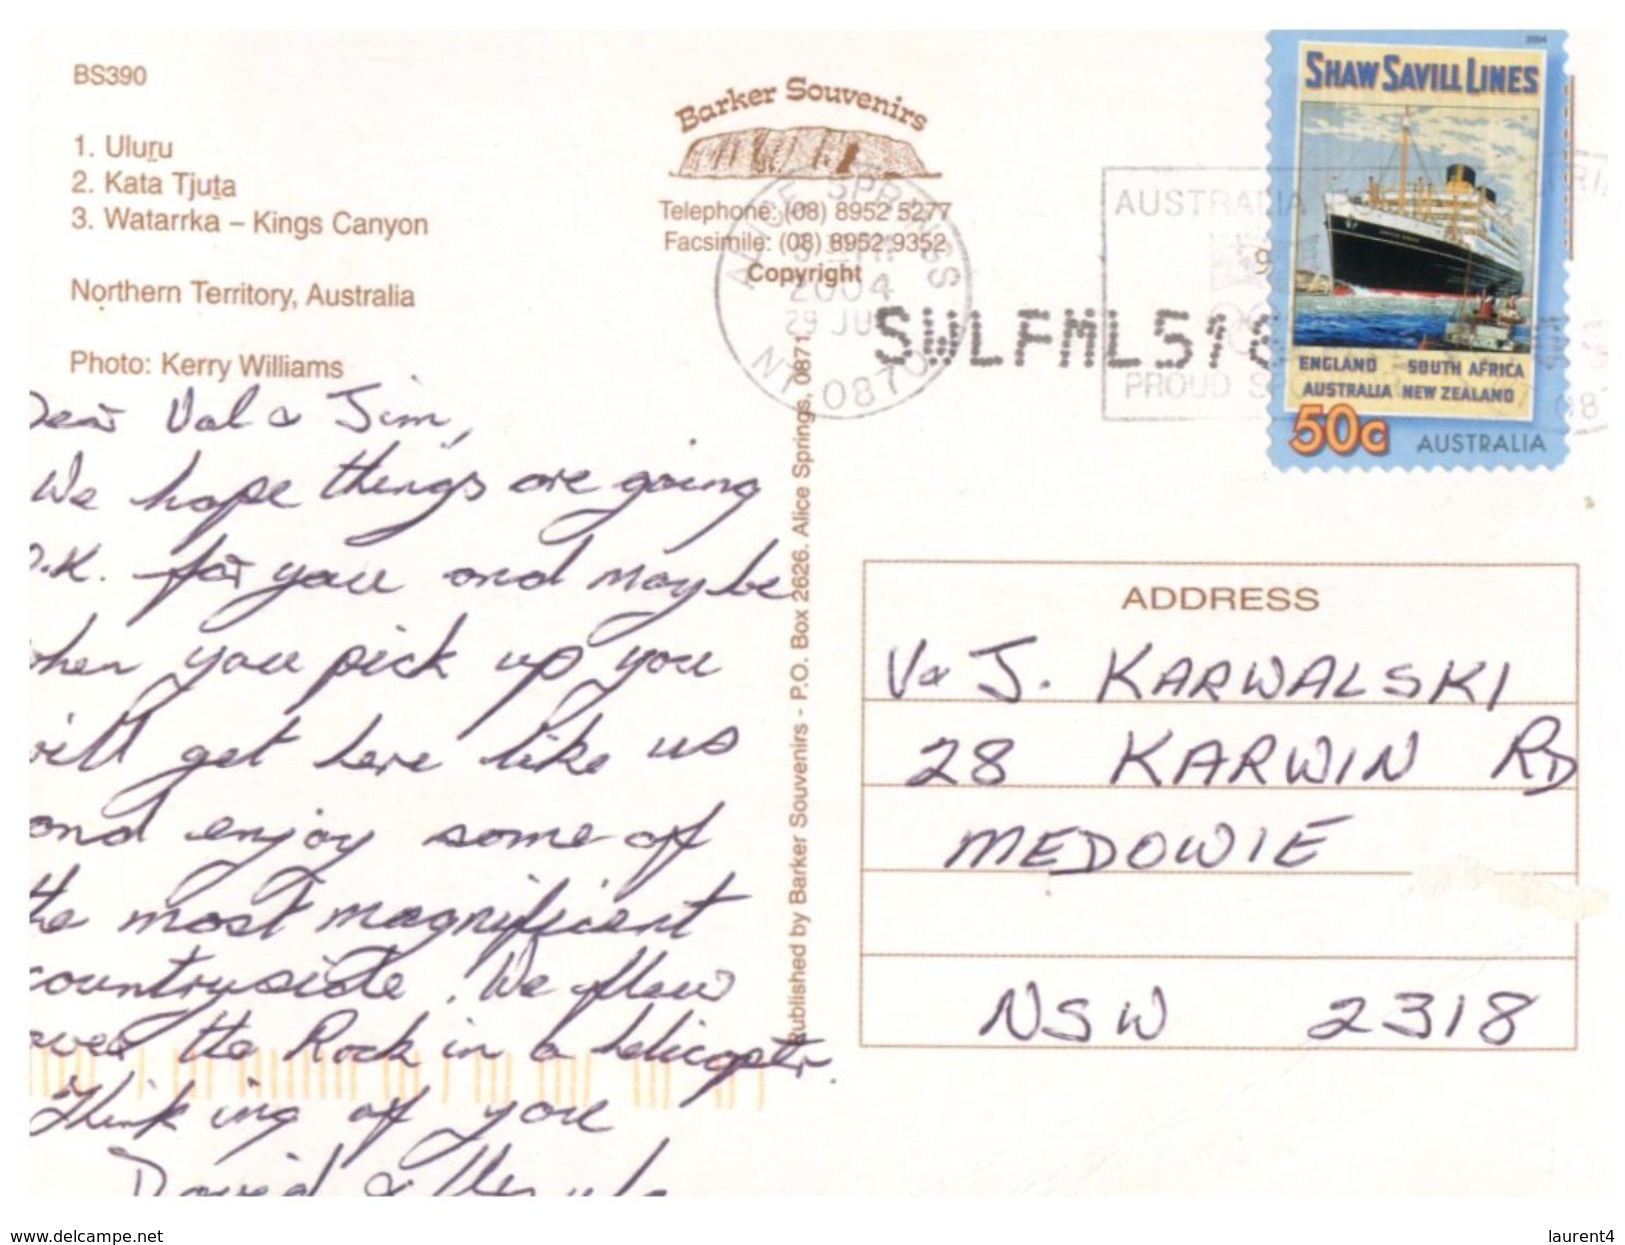 BS390
1. Uluṟu
2. Kata Tjuṯa
3. Watarrka – Kings Canyon
Northern Territory, Australia
Photo: Kerry Williams
Barker Souvenirs
Telephone: (08) 8952 5277
Facsimile: (08) 8952 9352
Copyright
ALICE SPRINGS
2004
29 JU
NT 0870
SWLFML518
AUSTRALIA
PROUD
2004
SHAW SAVILL LINES
ENGLAND SOUTH AFRICA
AUSTRALIA NEW ZEALAND
50c AUSTRALIA
Dear Val & Jim,
We hope things are going
O.K. for you and maybe
when you pick up you
will get here like us
and enjoy some of
the most magnificent
countryside. We flew
over the Rock in a helicopter.
Thinking of you
David &
Published by Barker Souvenirs - P.O. Box 2626. Alice Springs, 0871.
ADDRESS
V & J. KARWALSKI
28 KARWIN RD
MEDOWIE
NSW 2318
www.delcampe.net
laurent4